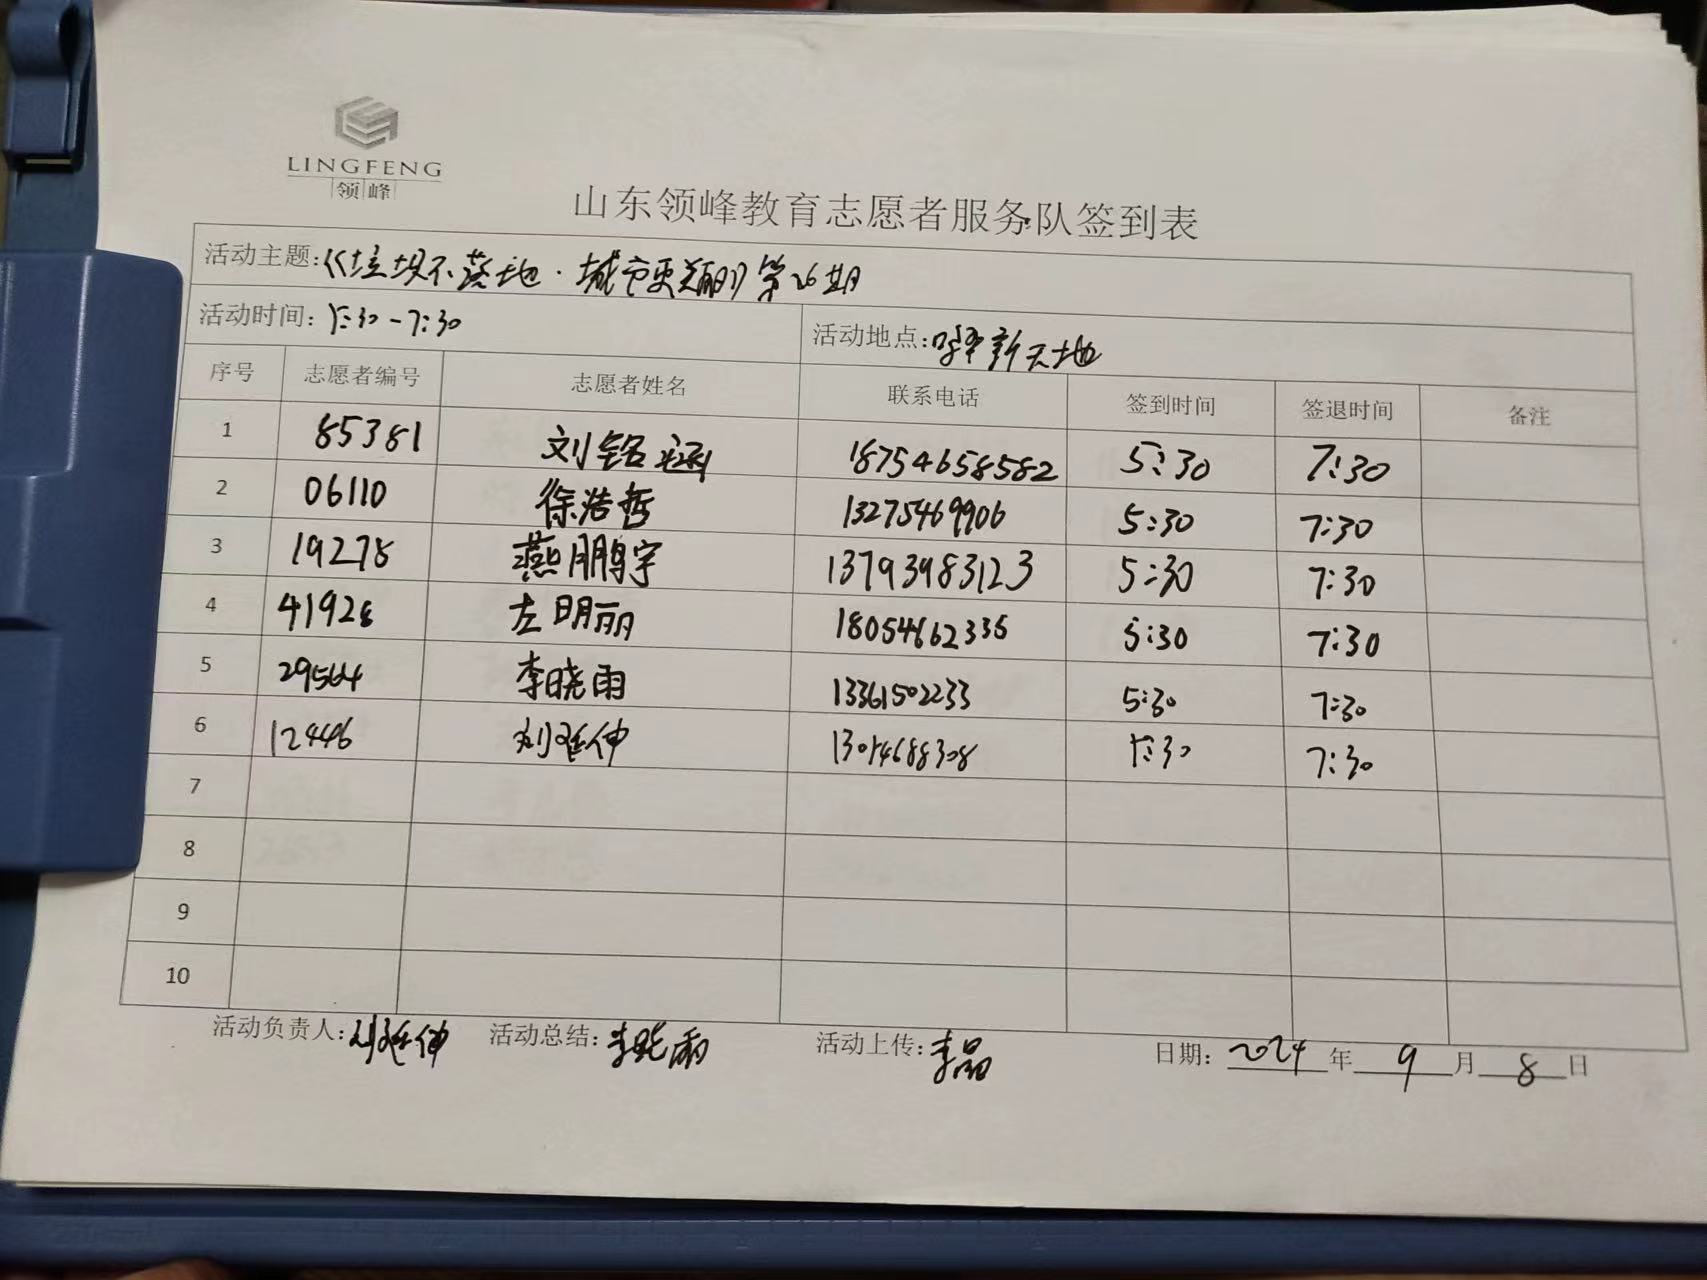 LINGFENG
领峰
山东领峰教育志愿者服务队签到表
活动主题:《垃圾不落地·城市更靓丽》第26期
活动时间: 5:30-7:30 活动地点: 新天地
序号 志愿者编号 志愿者姓名 联系电话 签到时间 签退时间 备注
1 85381 刘铭涵 18754658582 5:30 7:30
2 06110 徐浩哲 13275469906 5:30 7:30
3 19278 燕鹏宇 13793983123 5:30 7:30
4 41928 左明丽 18054662335 5:30 7:30
5 29564 李晓雨 13361502233 5:30 7:30
6 12446 刘延伸 13054688308 5:30 7:30
7
8
9
10
活动负责人: 刘延伸 活动总结: 李晓雨 活动上传: 李晶 日期: 2024 年 9 月 8 日